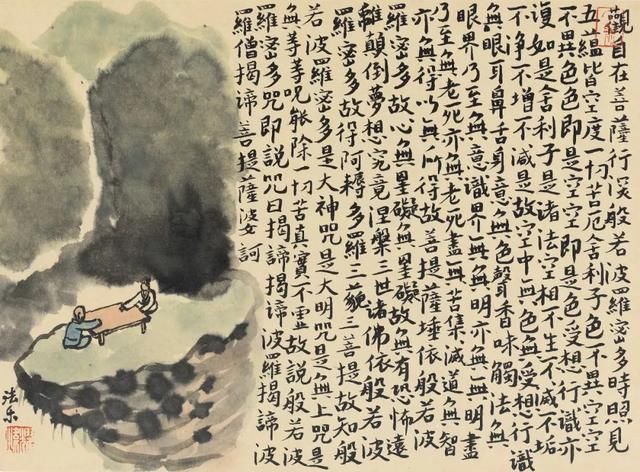 觀自在菩薩行深般若波羅密多時照見
五蘊皆空度一切苦厄舍利子色不異空空
不異色色即是空空即是色受想行識亦
復如是舍利子是诸法空相不生不滅不垢
不淨不增不减是故空中無色無受想行識
無眼耳鼻舌身意無色聲香味觸法無
眼界乃至無意識界無無明亦無無明盡
乃至無老死亦無老死盡無苦集滅道無智
亦無得以無所得故菩提薩埵依般若波
羅密多故心無罣礙無罣礙故無有恐怖遠
離顛倒夢想究竟涅槃三世诸佛依般若波
羅密多故得阿耨多羅三藐三菩提故知般
若波羅密多是大神咒是大明咒是無上咒是
無等等咒能除一切苦真實不虛故說般若波
羅密多咒即說咒曰揭諦揭諦波羅揭諦波
羅僧揭諦菩提薩婆訶
法乐